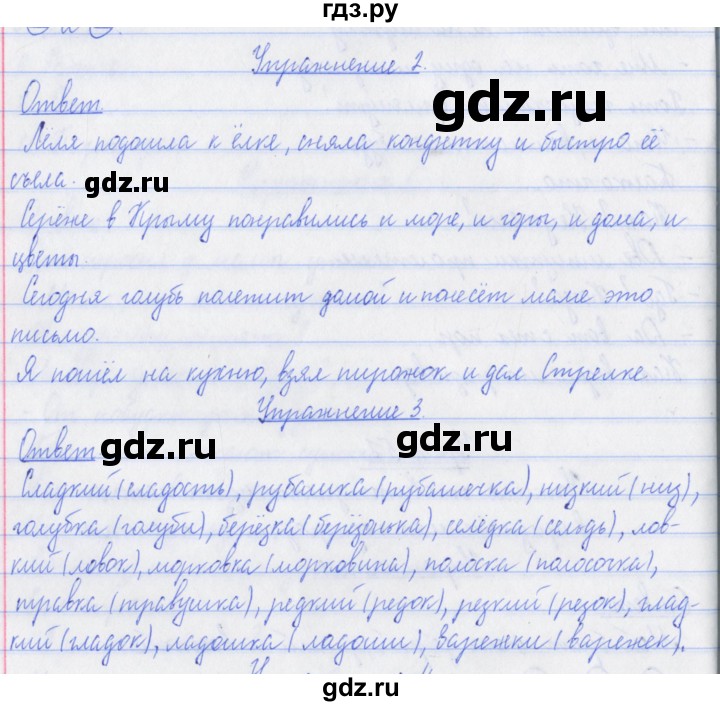 гдз.ру
Упражнение 2.
Ответ
gdz.ru
Лёля подошла к ёлке, сняла конфетку и быстро её
съела.
gdz.ru
Серёже в Крыму понравились и море, и горы, и дома, и
цветы.
Сегодня голубь полетит домой и понесёт маме это
письмо.
Я пошёл на кухню, взял пирожок и дал Стрелке
Упражнение 3.
Ответ
gdz.ru
gdz.ru
Сладкий (сладость), рубашка (рубашечка), низкий (низ),
голубка (голуби), берёзка (берёзонька), селёдка (сельдь), лов-
кий (ловок), морковка (морковина), полоска (полосочка),
травка (травушка), редкий (редок), резкий (резок), глад-
кий (гладок), ладошка (ладоши), варежки (варежек).
gdz.ru